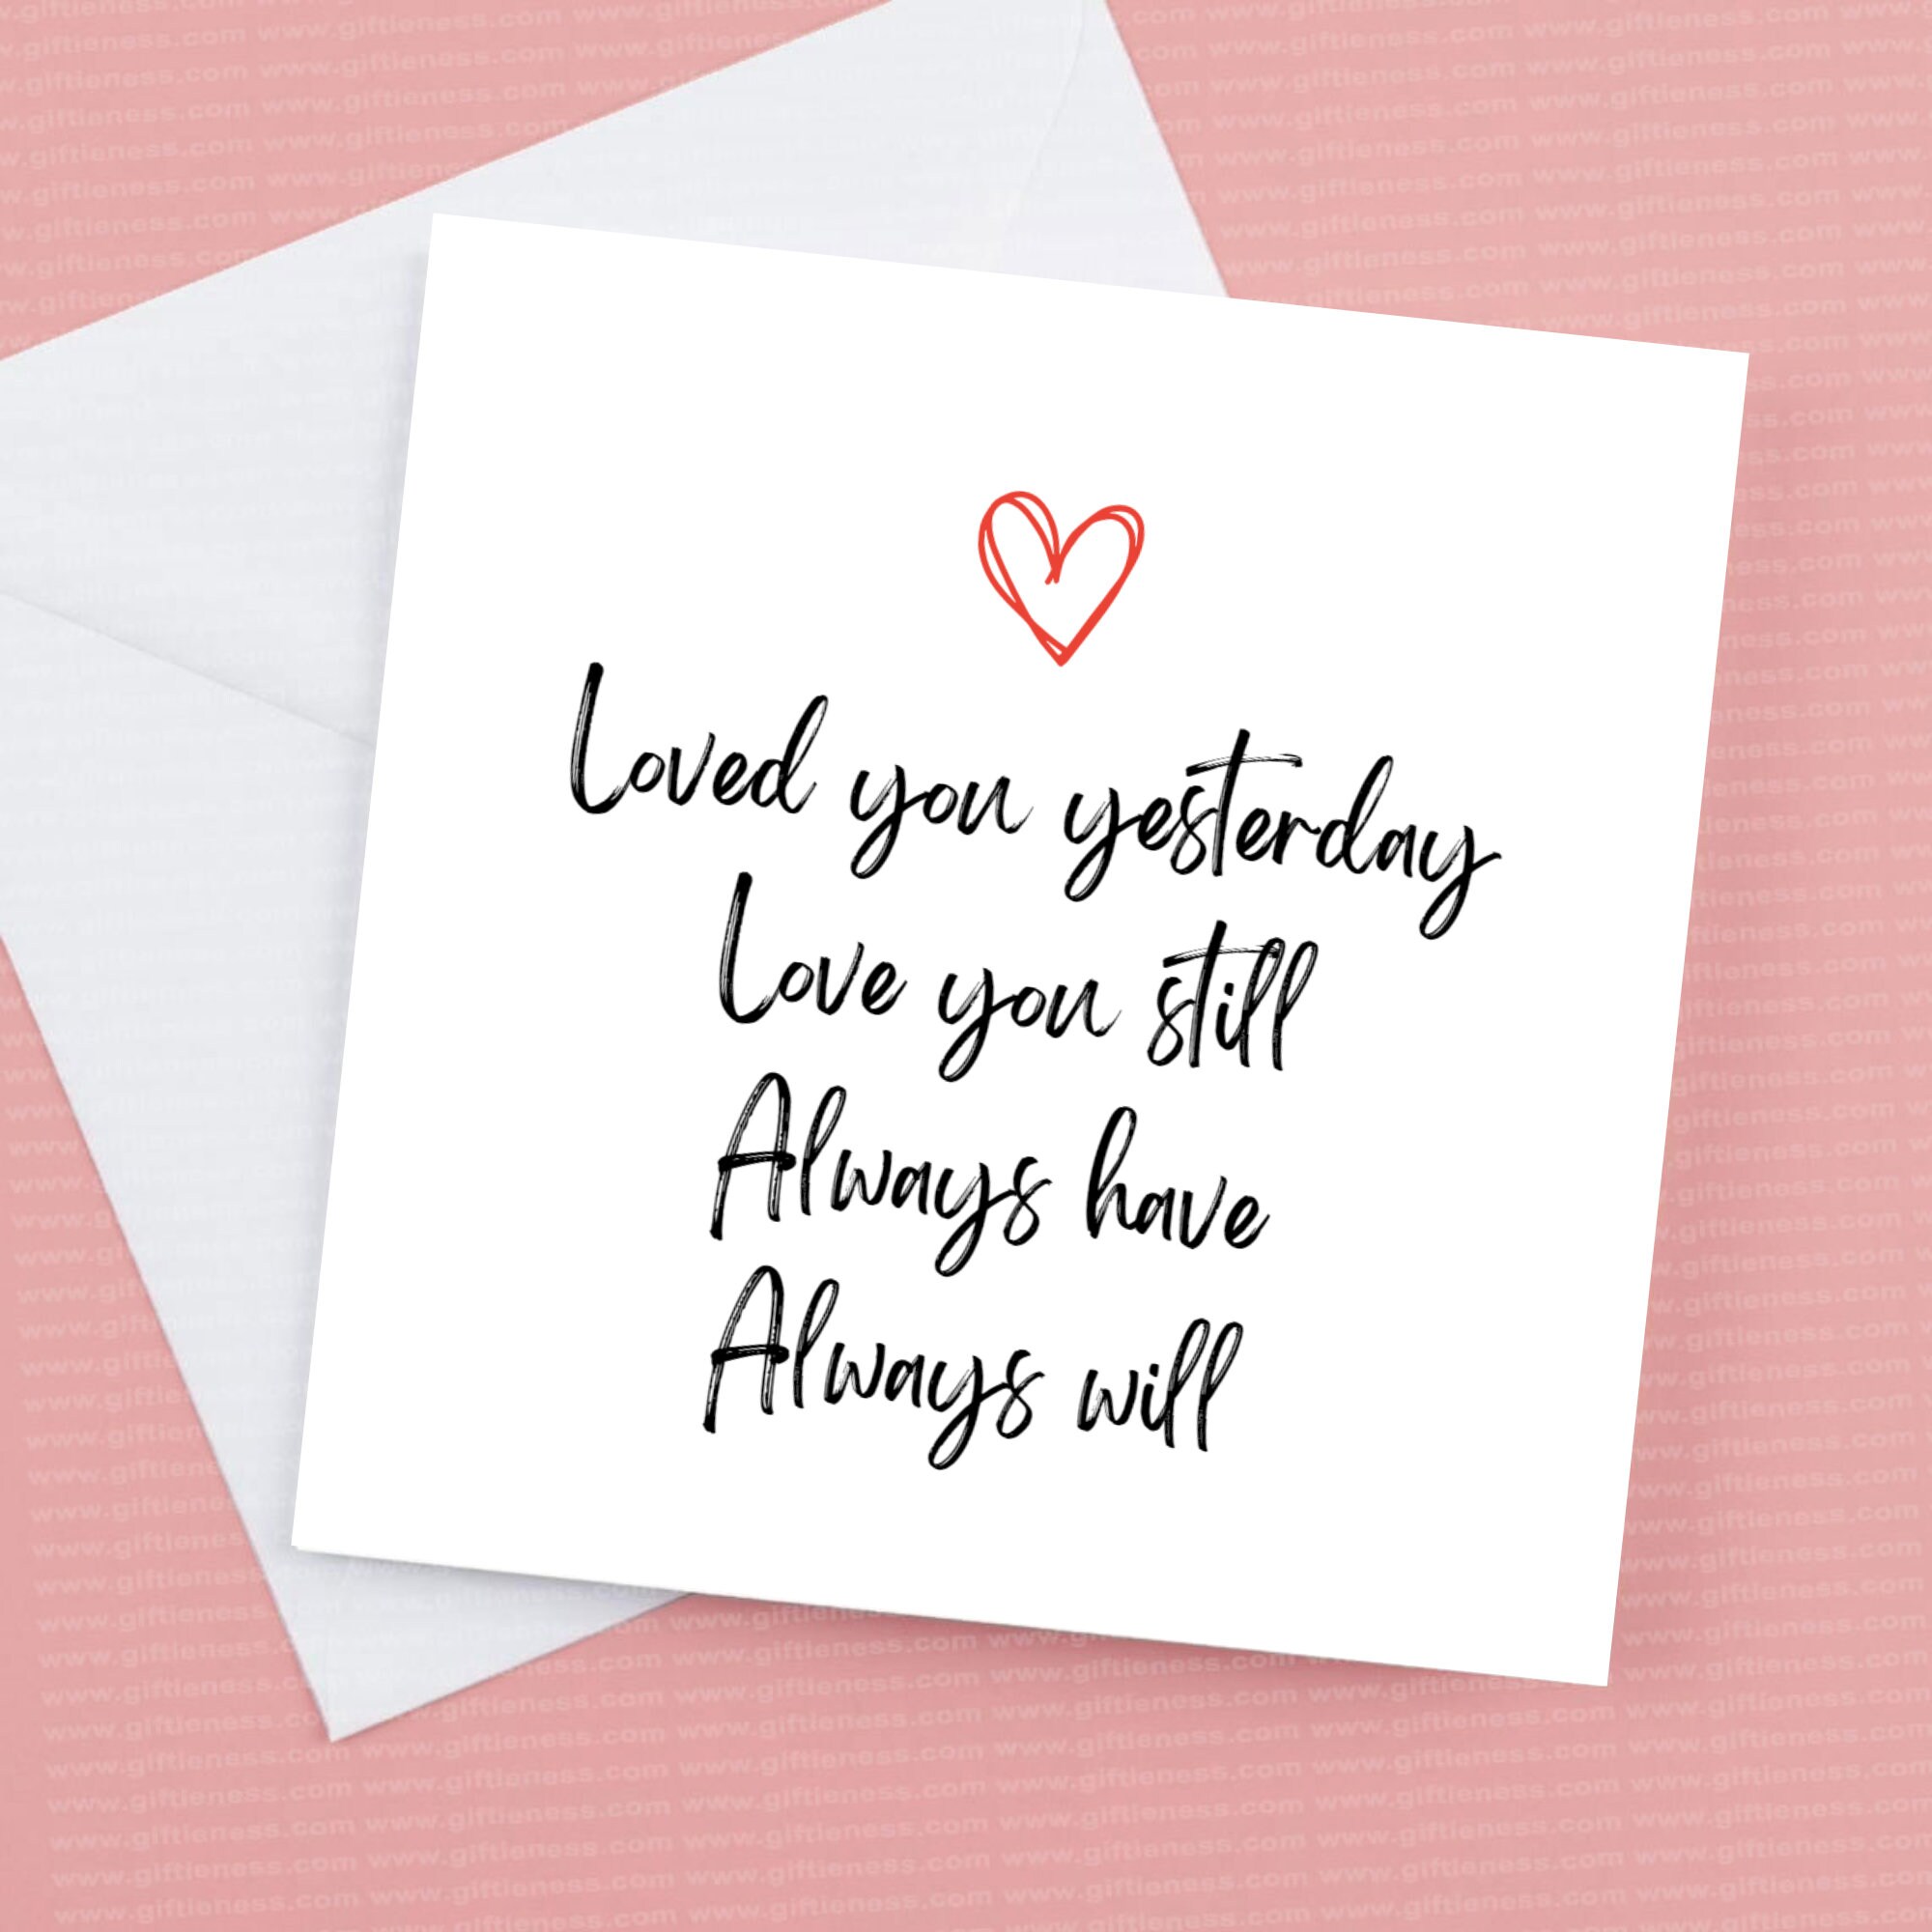 Loved you yesterday
Love you still
Always have
Always will
www.giftieness.com